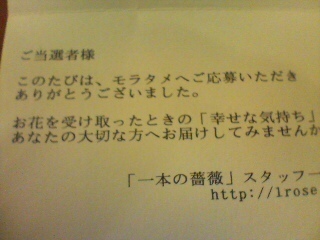 ご当選者様
このたびは、モラタメへご応募いただき
ありがとうございました。
お花を受け取ったときの「幸せな気持ち」
あなたの大切な方へお届けしてみませんか
「一本の薔薇」スタッフ一
http://1rose